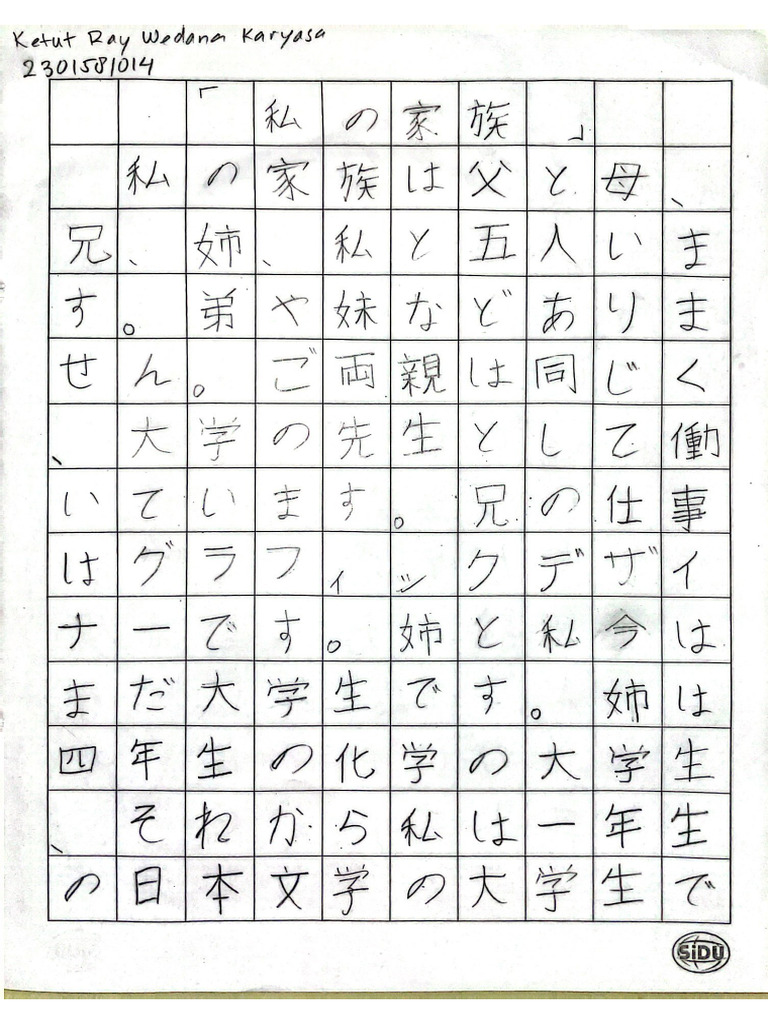 Ketut Ray Wedana Karyasa
2301581014
「私の家族」
私の家族は父と母、
兄、姉、私と五人いま
す。弟や妹などありま
せん。ご両親は同じく
、大学の先生として働
いています。兄の仕事
はグラフィックデザイ
ナーです。姉と私今は
まだ大学生です。姉は
四年生の化学の大学生
、それから私は一年生
の日本文学の大学生で
SiDU